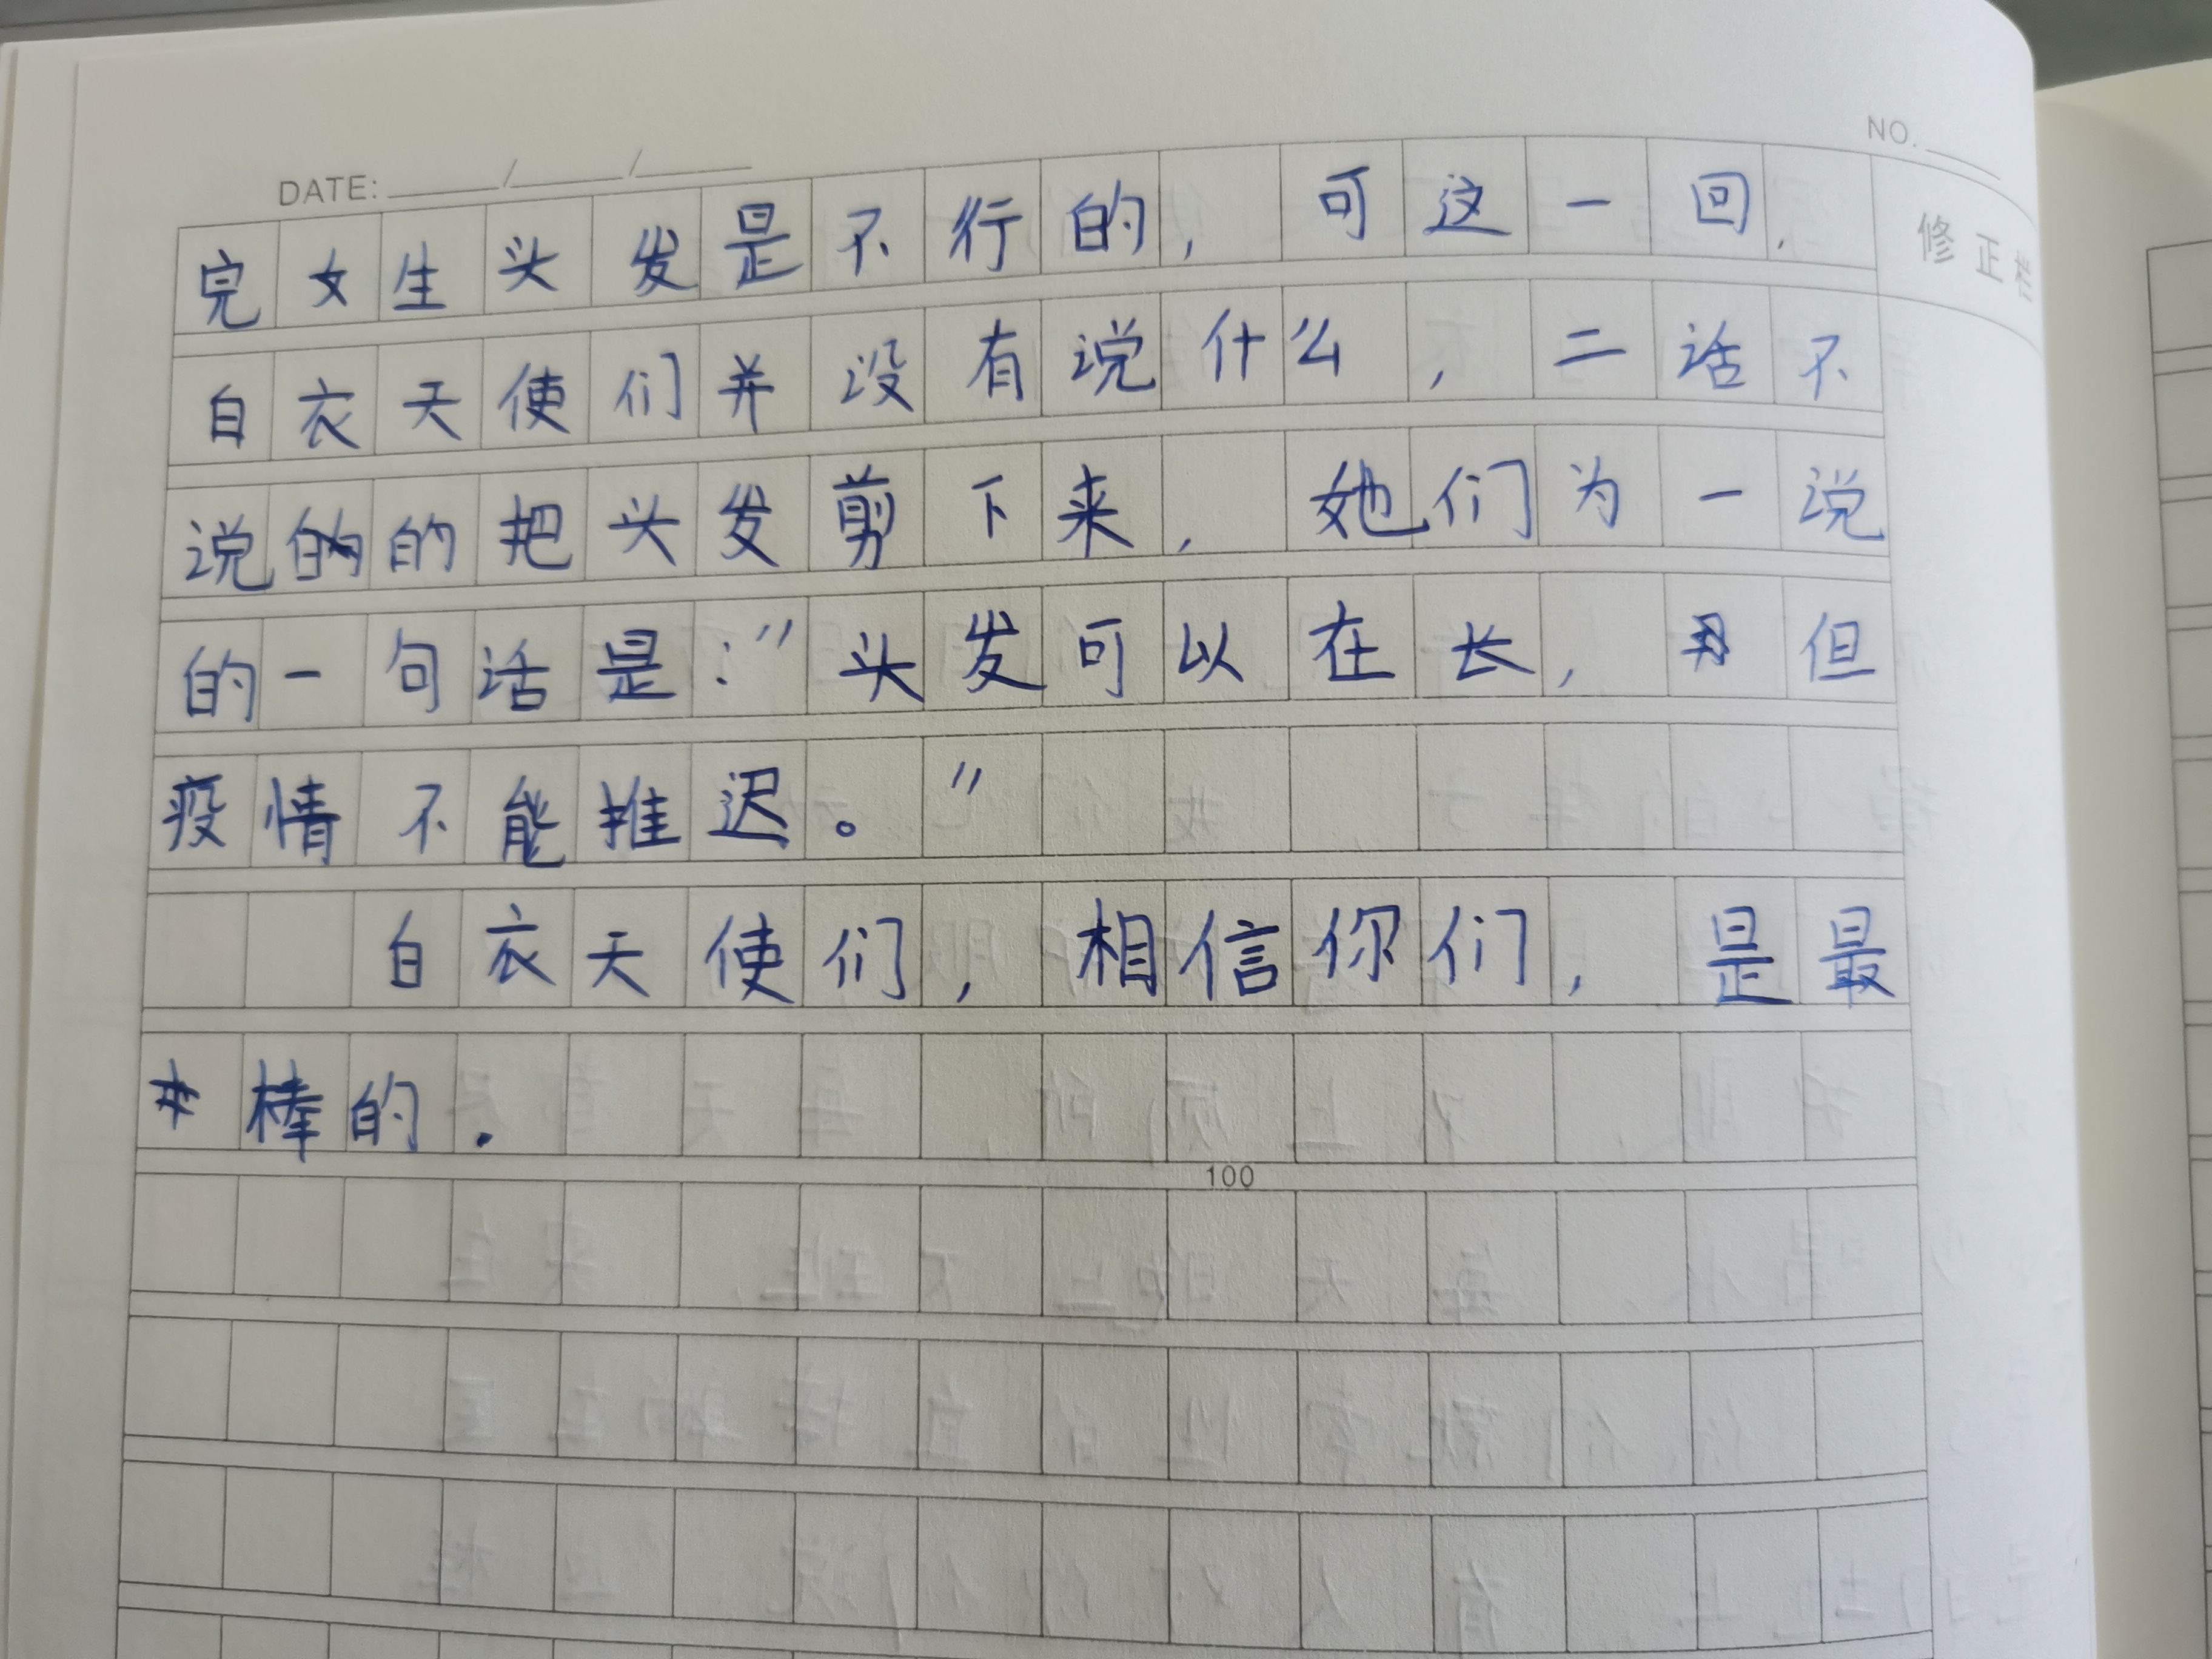 DATE: / /
NO.
修正栏
完女生头发是不行的，可这一回，
白衣天使们并没有说什么，二话不
说的的把头发剪下来，她们为一说
的一句话是："头发可以在长，但
疫情不能推迟。"
白衣天使们，相信你们，是最
棒的.
100